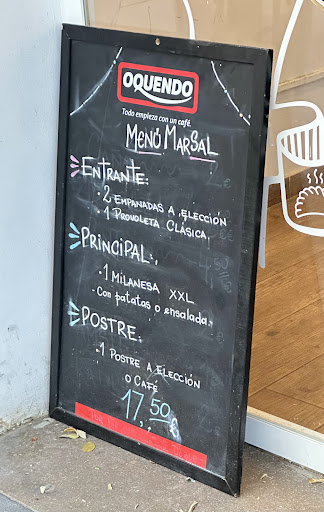 OQUENDO
Todo empieza con un café.
MENÚ MARSAL
ENTRANTE:
· 2 EMPANADAS A ELECCIÓN
· 1 PROVOLETA CLÁSICA.
PRINCIPAL:
· 1 MILANESA XXL
- CON PATATAS O ENSALADA.
POSTRE:
· 1 POSTRE A ELECCIÓN
O CAFÉ
17,50